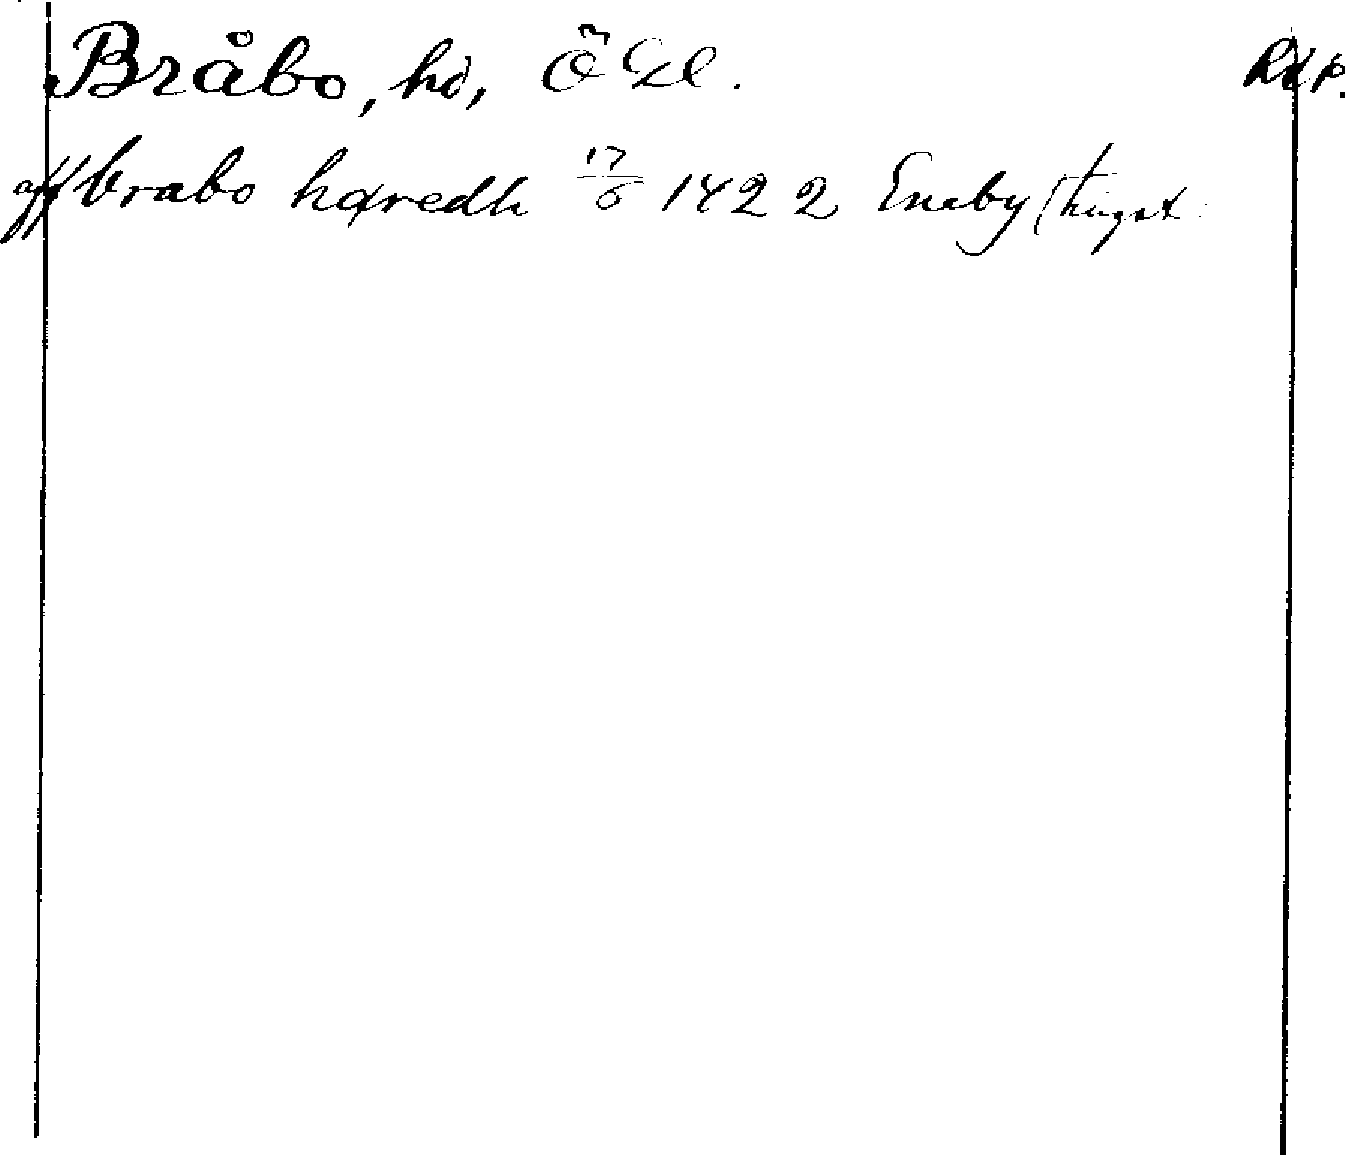 Bråbo, hd, ÖGl. RAp.
aff brabo hæredh 17/6 1422 Eneby (tingst.